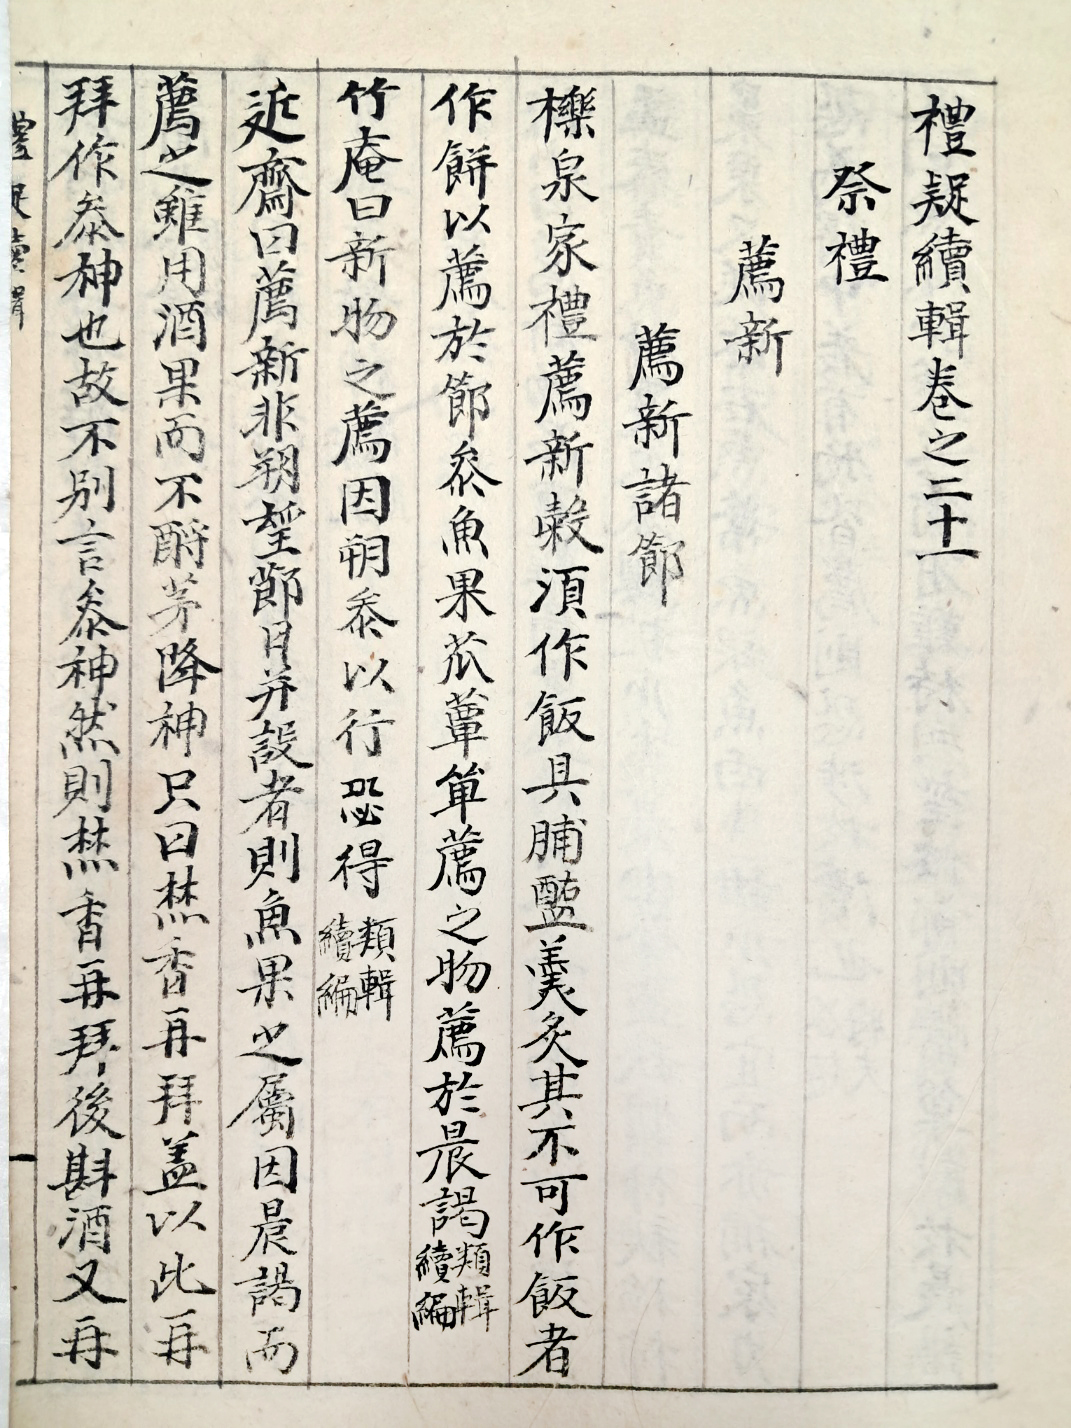 禮疑續輯卷之二十一
祭禮
薦新
薦新諸節
櫟泉家禮薦新穀須作飯具脯醢羹炙其不可作飯者
作餠以薦於節叅魚果苽蕈單薦之物薦於晨謁類輯續編
竹庵曰新物之薦因朔叅以行恐得類輯續編
近齋曰薦新非朔望節日并設者則魚果之屬因晨謁而
薦之雖用酒果而不酹茅降神只曰焚香再拜盖以此再
拜作叅神也故不別言叅神然則焚香再拜後斟酒又再
禮疑續輯